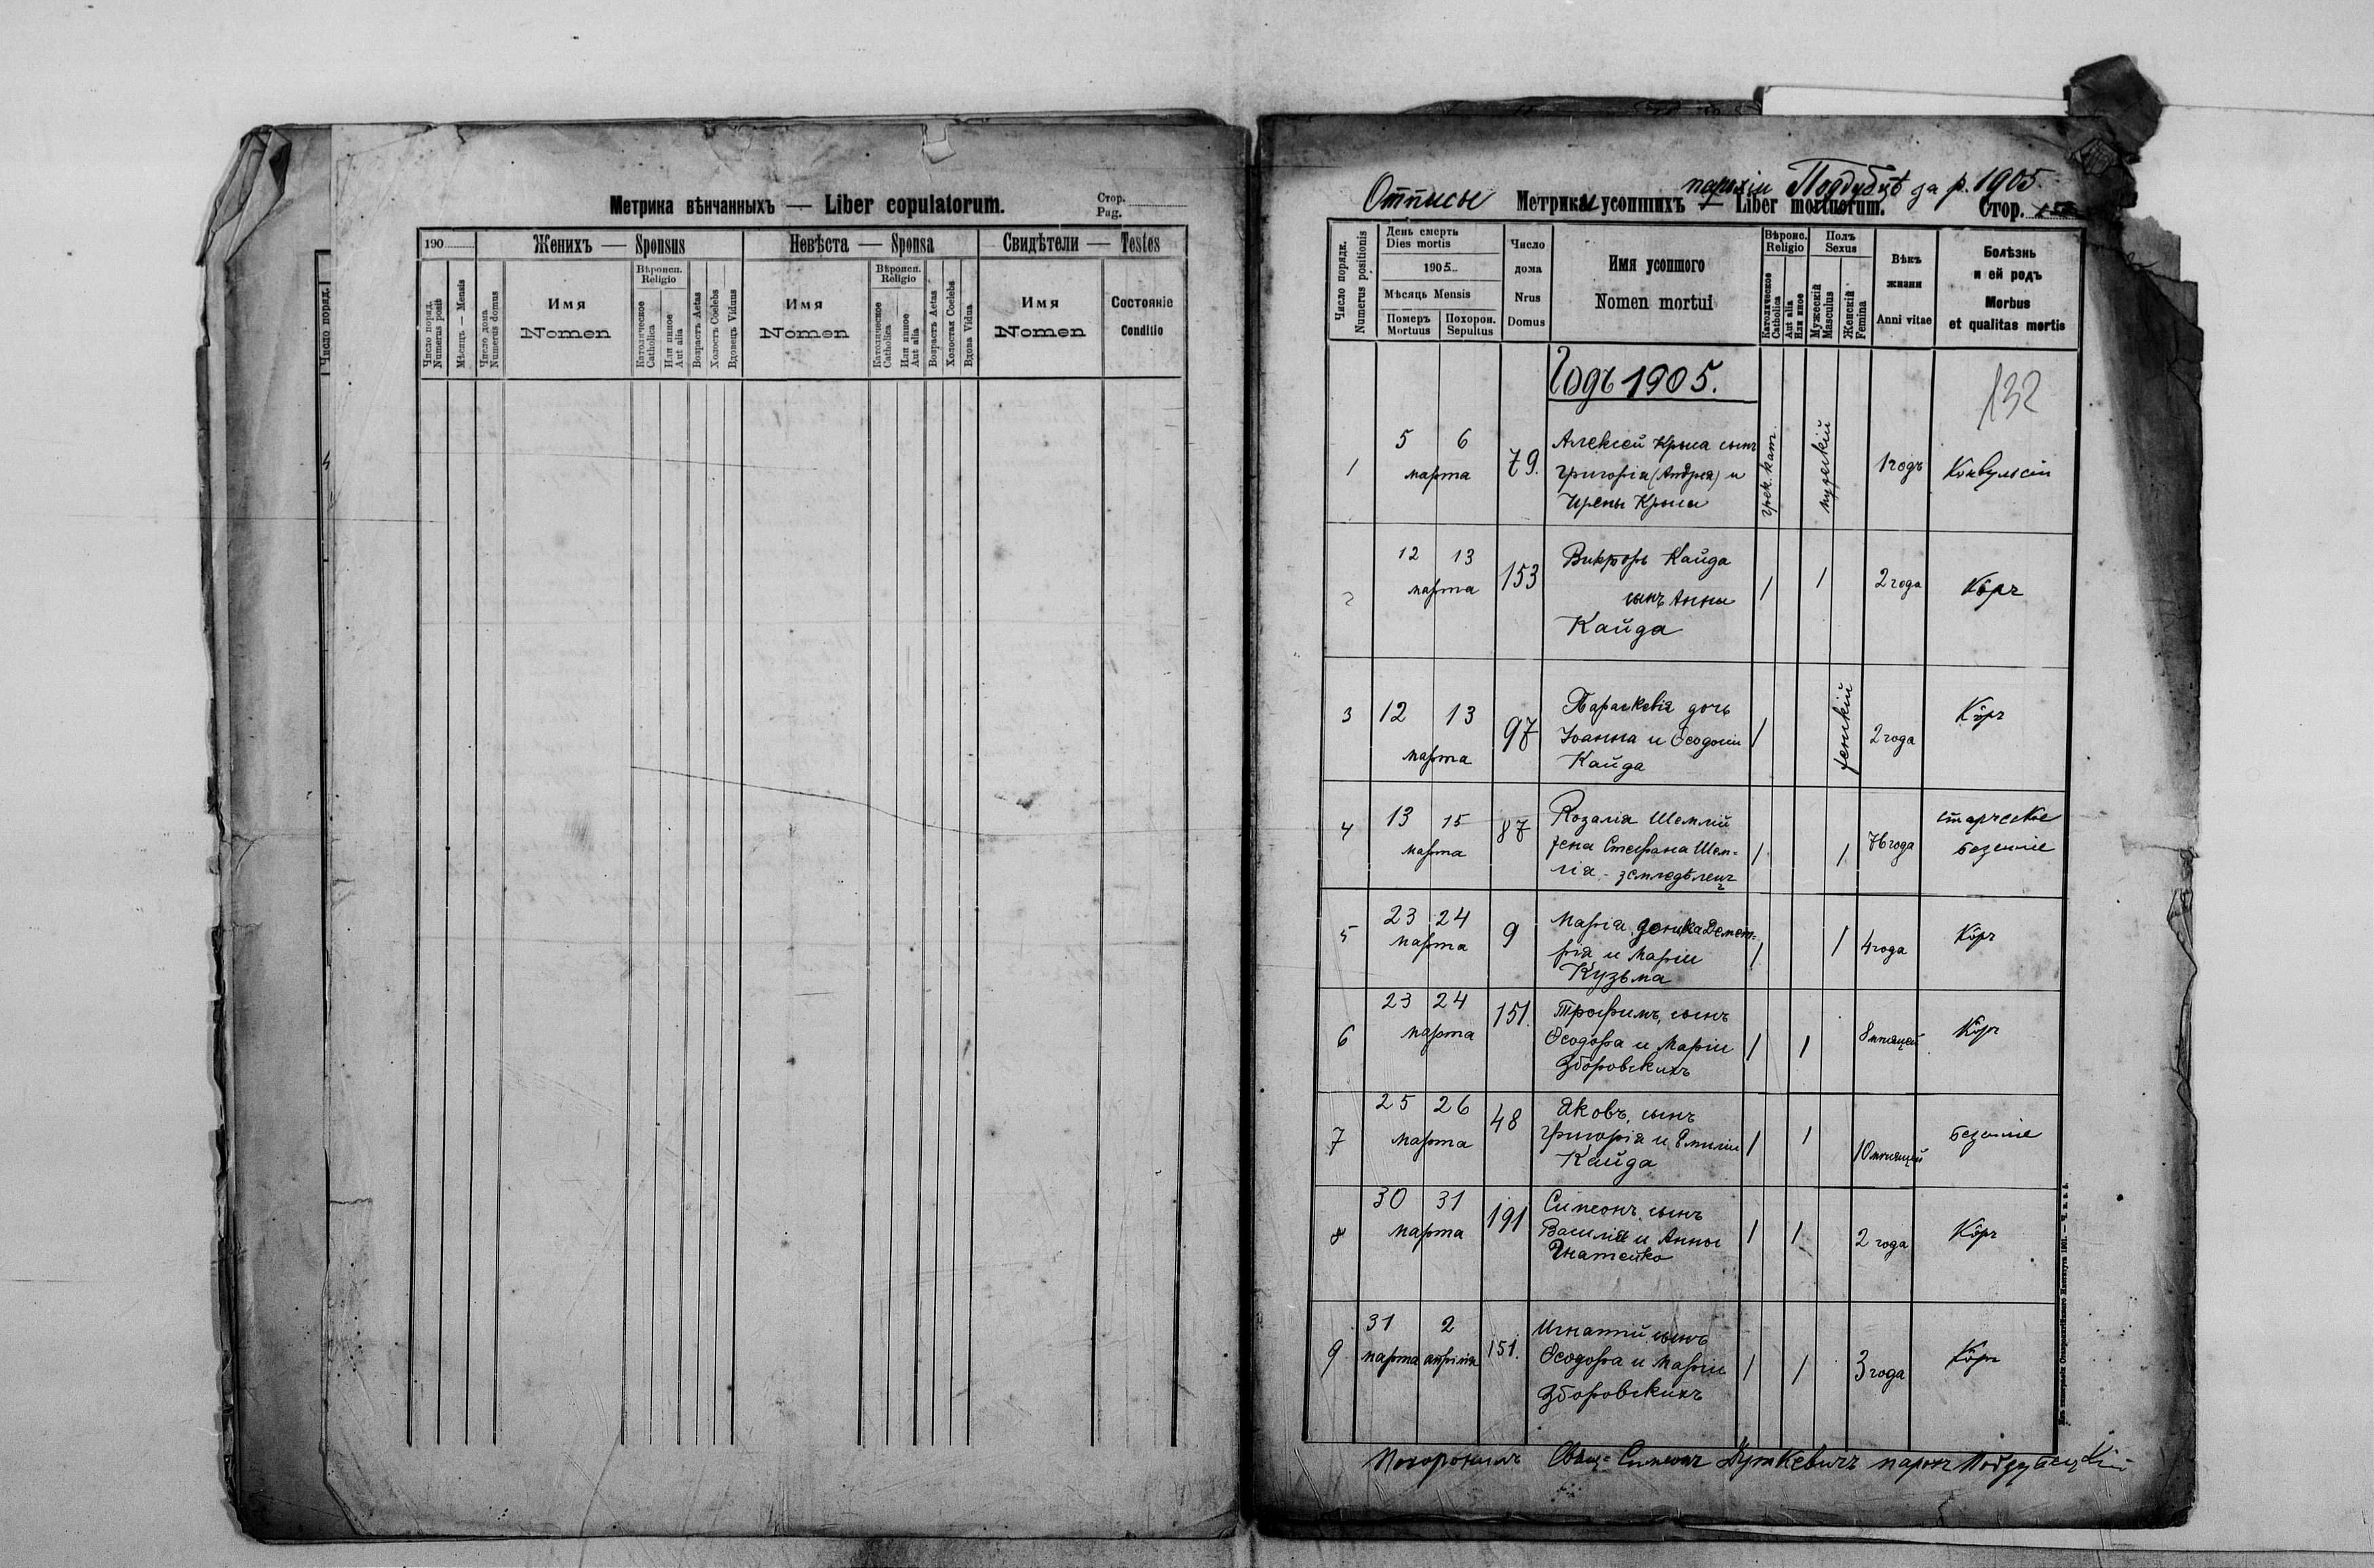 Метрика вѣнчанныхъ — Liber copulatorum.
Стор.
Pag.
190
Женихъ — Sponsus
Невѣста — Sponsa
Свидѣтели — Testes
Число поряд.
Numerus posit
Мѣсяць — Mensis
Число дома
Numerus domus
Имя
Nomen
Вѣроисп.
Religio
Католическое
Catholica
Или инное
Aut alia
Возрастъ Aetas
Холостъ Coelebs
Вдовець Viduus
Имя
Nomen
Вѣроисп.
Religio
Католическое
Catholica
Или инное
Aut alia
Возрастъ Aetas
Холостая Coelebs
Вдова Vidua
Имя
Nomen
Состояніе
Conditio
Число поряд.
парохіи Подубцѣ за р. 1905.
Отписы Метрики усопшихъ — Liber mortuorum. Стор.
Число порядк.
Numerus positionis
День смерть
Dies mortis
1905
Мѣсяць Mensis
Померъ
Mortuus
Похорон.
Sepultus
Число
дома
Nrus
Domus
Имя усопшого
Nomen mortui
Вѣроис.
Religio
Католическое
Catholica
Aut alia
Или иное
Полъ
Sexus
Мужескій
Masculus
Женскій
Femina
Вѣкъ
жизни
Anni vitae
Болѣзнь
и ей родъ
Morbus
et qualitas mortis
Годъ 1905.
132
1 5 6 марта 79. Алексей Крыса сынъ
Григорія (Андрея) и
Ирены Крысы
грек. кат. мужескій 1 годъ Конвульсіи
2 12 13 марта 153 Викторъ Кайда
сынъ Анны
Кайда
/ / 2 года Кôръ
3 12 13 марта 97 Параскевія дочь
Іоанна и Ѳеодосіи
Кайда
/ женскій 2 года Кôръ
4 13 15 марта 87 Розалія Шемлій
жена Стефана Шем-
лія - земледѣлецъ
/ / 76 года старческое
безсиліе
5 23 24 марта 9 Марія, донька Демет-
рія и Маріи
Кузьма
/ / 4 года Кôръ
6 23 24 марта 151. Трофимъ, сынъ
Ѳеодора и Маріи
Зборовскихъ
/ / 8 мѣсяцей Кôръ
7 25 26 марта 48 Яковъ, сынъ
Григорія и Эмиліи
Кайда
/ / 10 мѣсяцей Безсиліе
8 30 31 марта 191 Симеонъ, сынъ
Василія и Анны
Гнатейко
/ / 2 года Кôръ
9 31 марта 2 апрѣля 151. Игнатій, сынъ
Ѳеодора и Маріи
Зборовскихъ
/ / 3 года Кôръ
Похоронилъ Свящ= Симеонъ Дуткевичъ парохъ Подубецкій
Изъ типографіи Ставропигійского Института 1901.